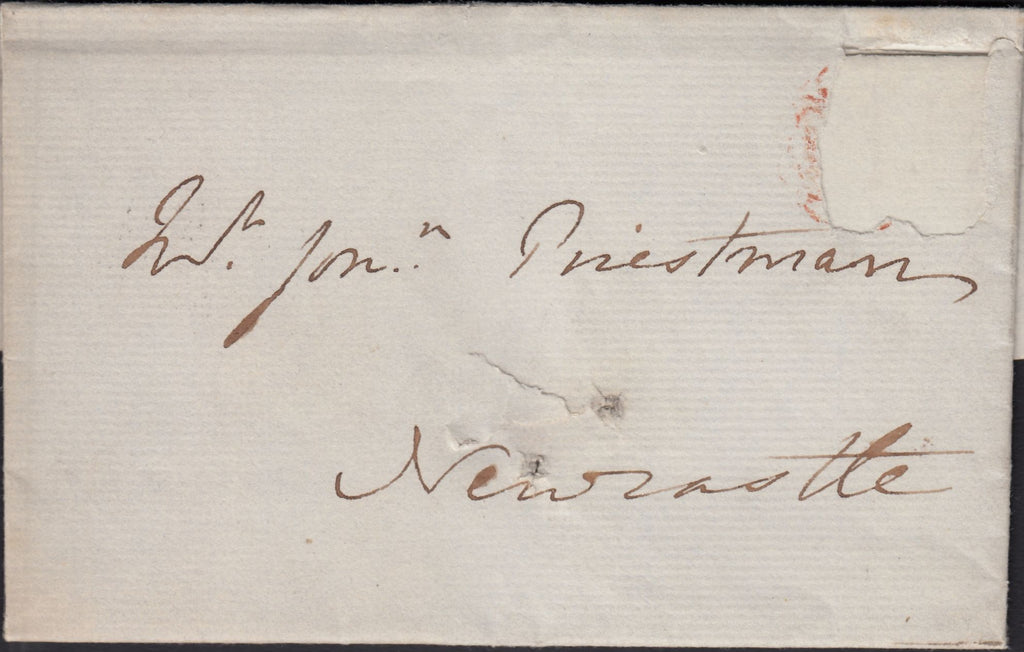 Jonⁿ Priestman
Newcastle